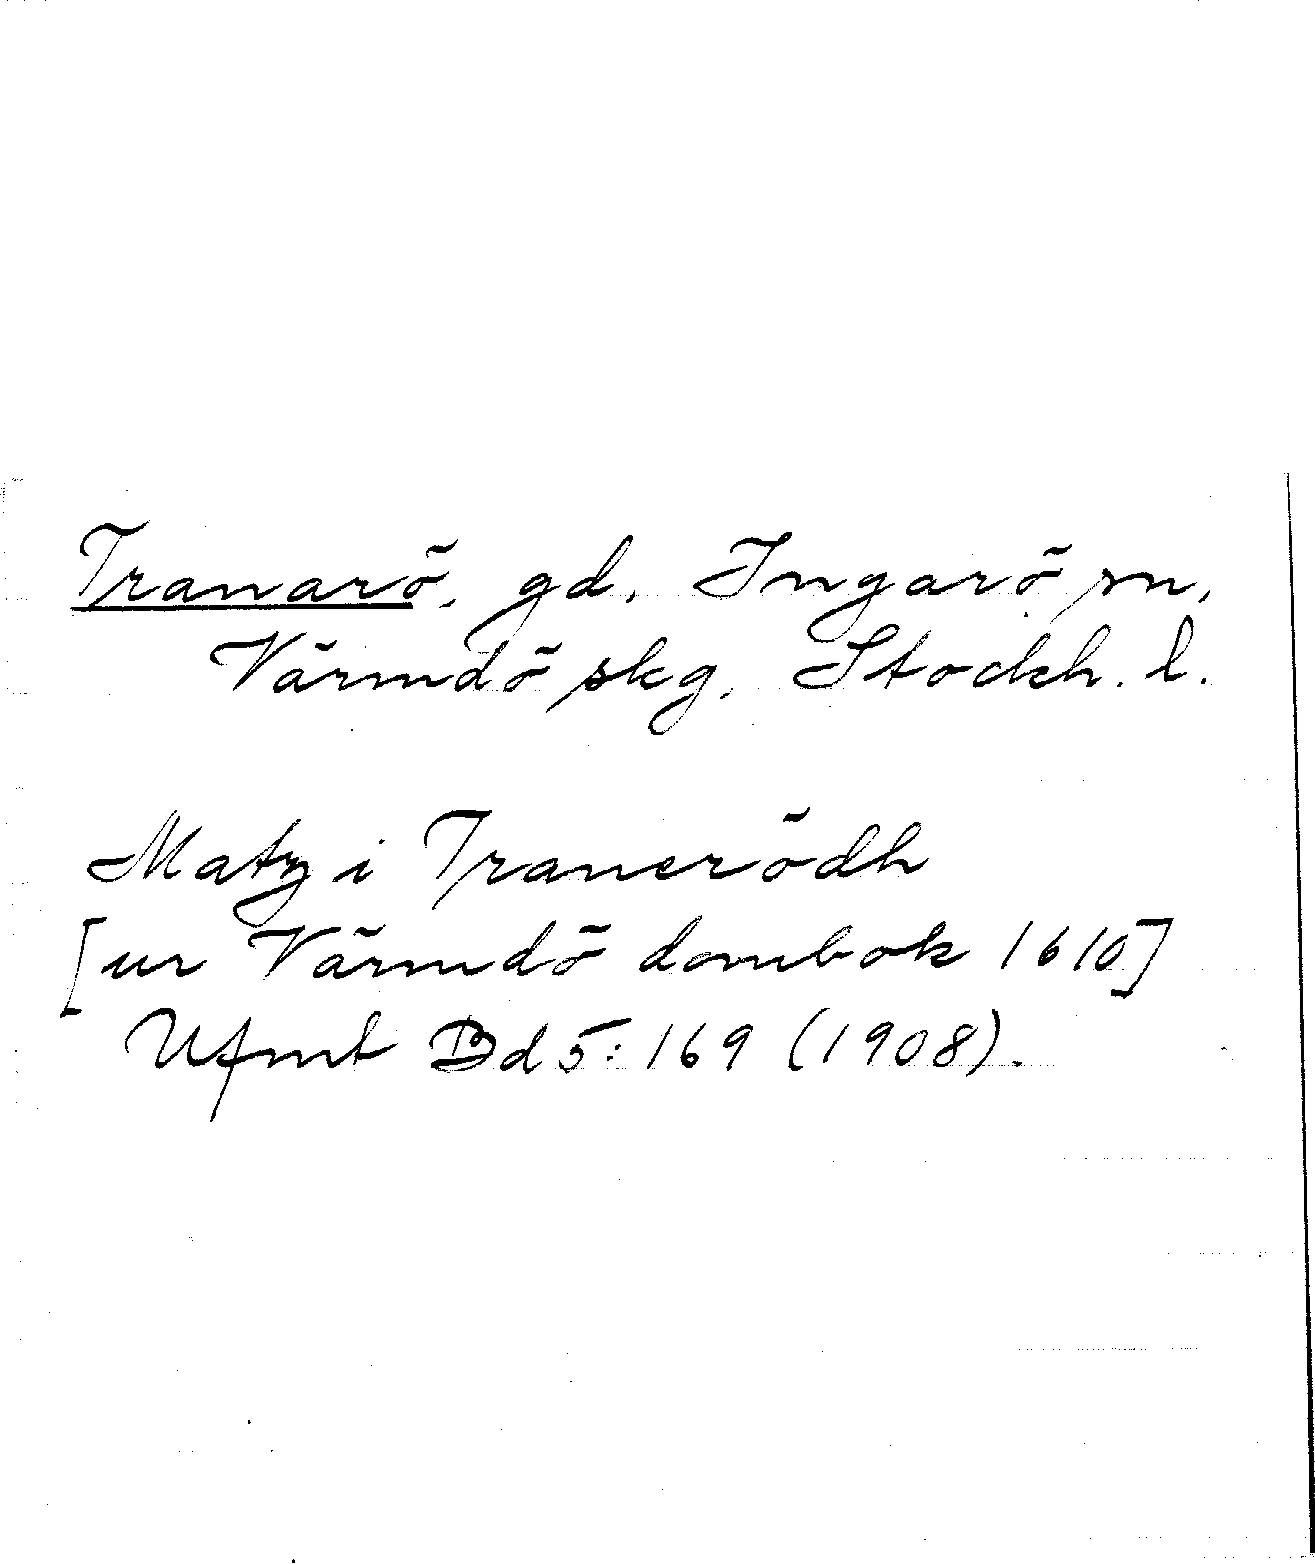 Tranarö, gd, Ingarö sn,
Värmdö skg, Stockh. l.
Matz i Tranerödh
[ur Värmdö dombok 1610]
Ufmt Bd 5: 169 (1908).